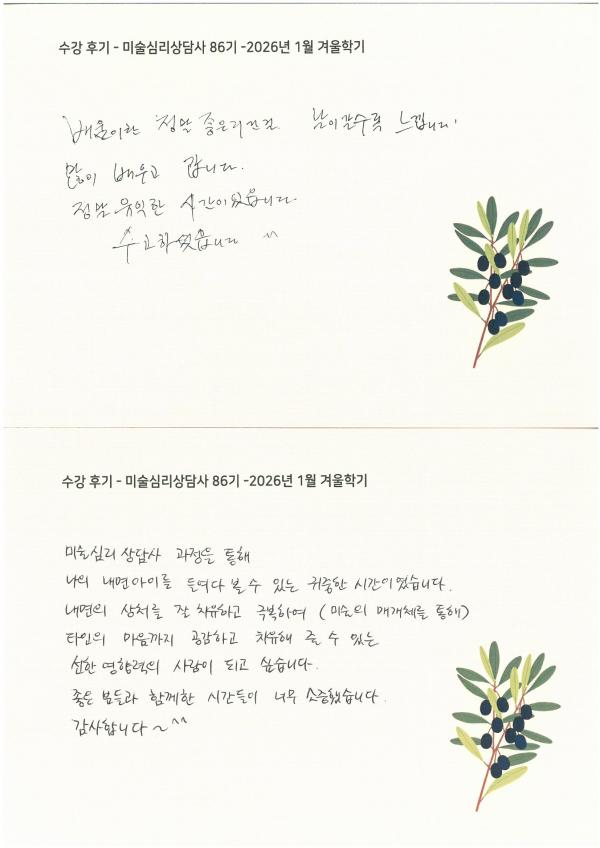 수강 후기 - 미술심리상담사 86기 -2026년 1월 겨울학기
배움이란 정말 좋은거란걸 날이갈수록 느낍니다.
많이 배우고 갑니다.
정말 유익한 시간이었습니다.
수고하셨습니다 ^^
수강 후기 - 미술심리상담사 86기 -2026년 1월 겨울학기
미술심리 상담사 과정을 통해
나의 내면아이를 들여다 볼 수 있는 귀중한 시간이였습니다.
내면의 상처를 잘 치유하고 극복하여 (미술의 매개체를 통해)
타인의 마음까지 공감하고 치유해 줄 수 있는
선한 영향력의 사람이 되고 싶습니다.
좋은 분들과 함께한 시간들이 너무 소중했습니다.
감사합니다~^^